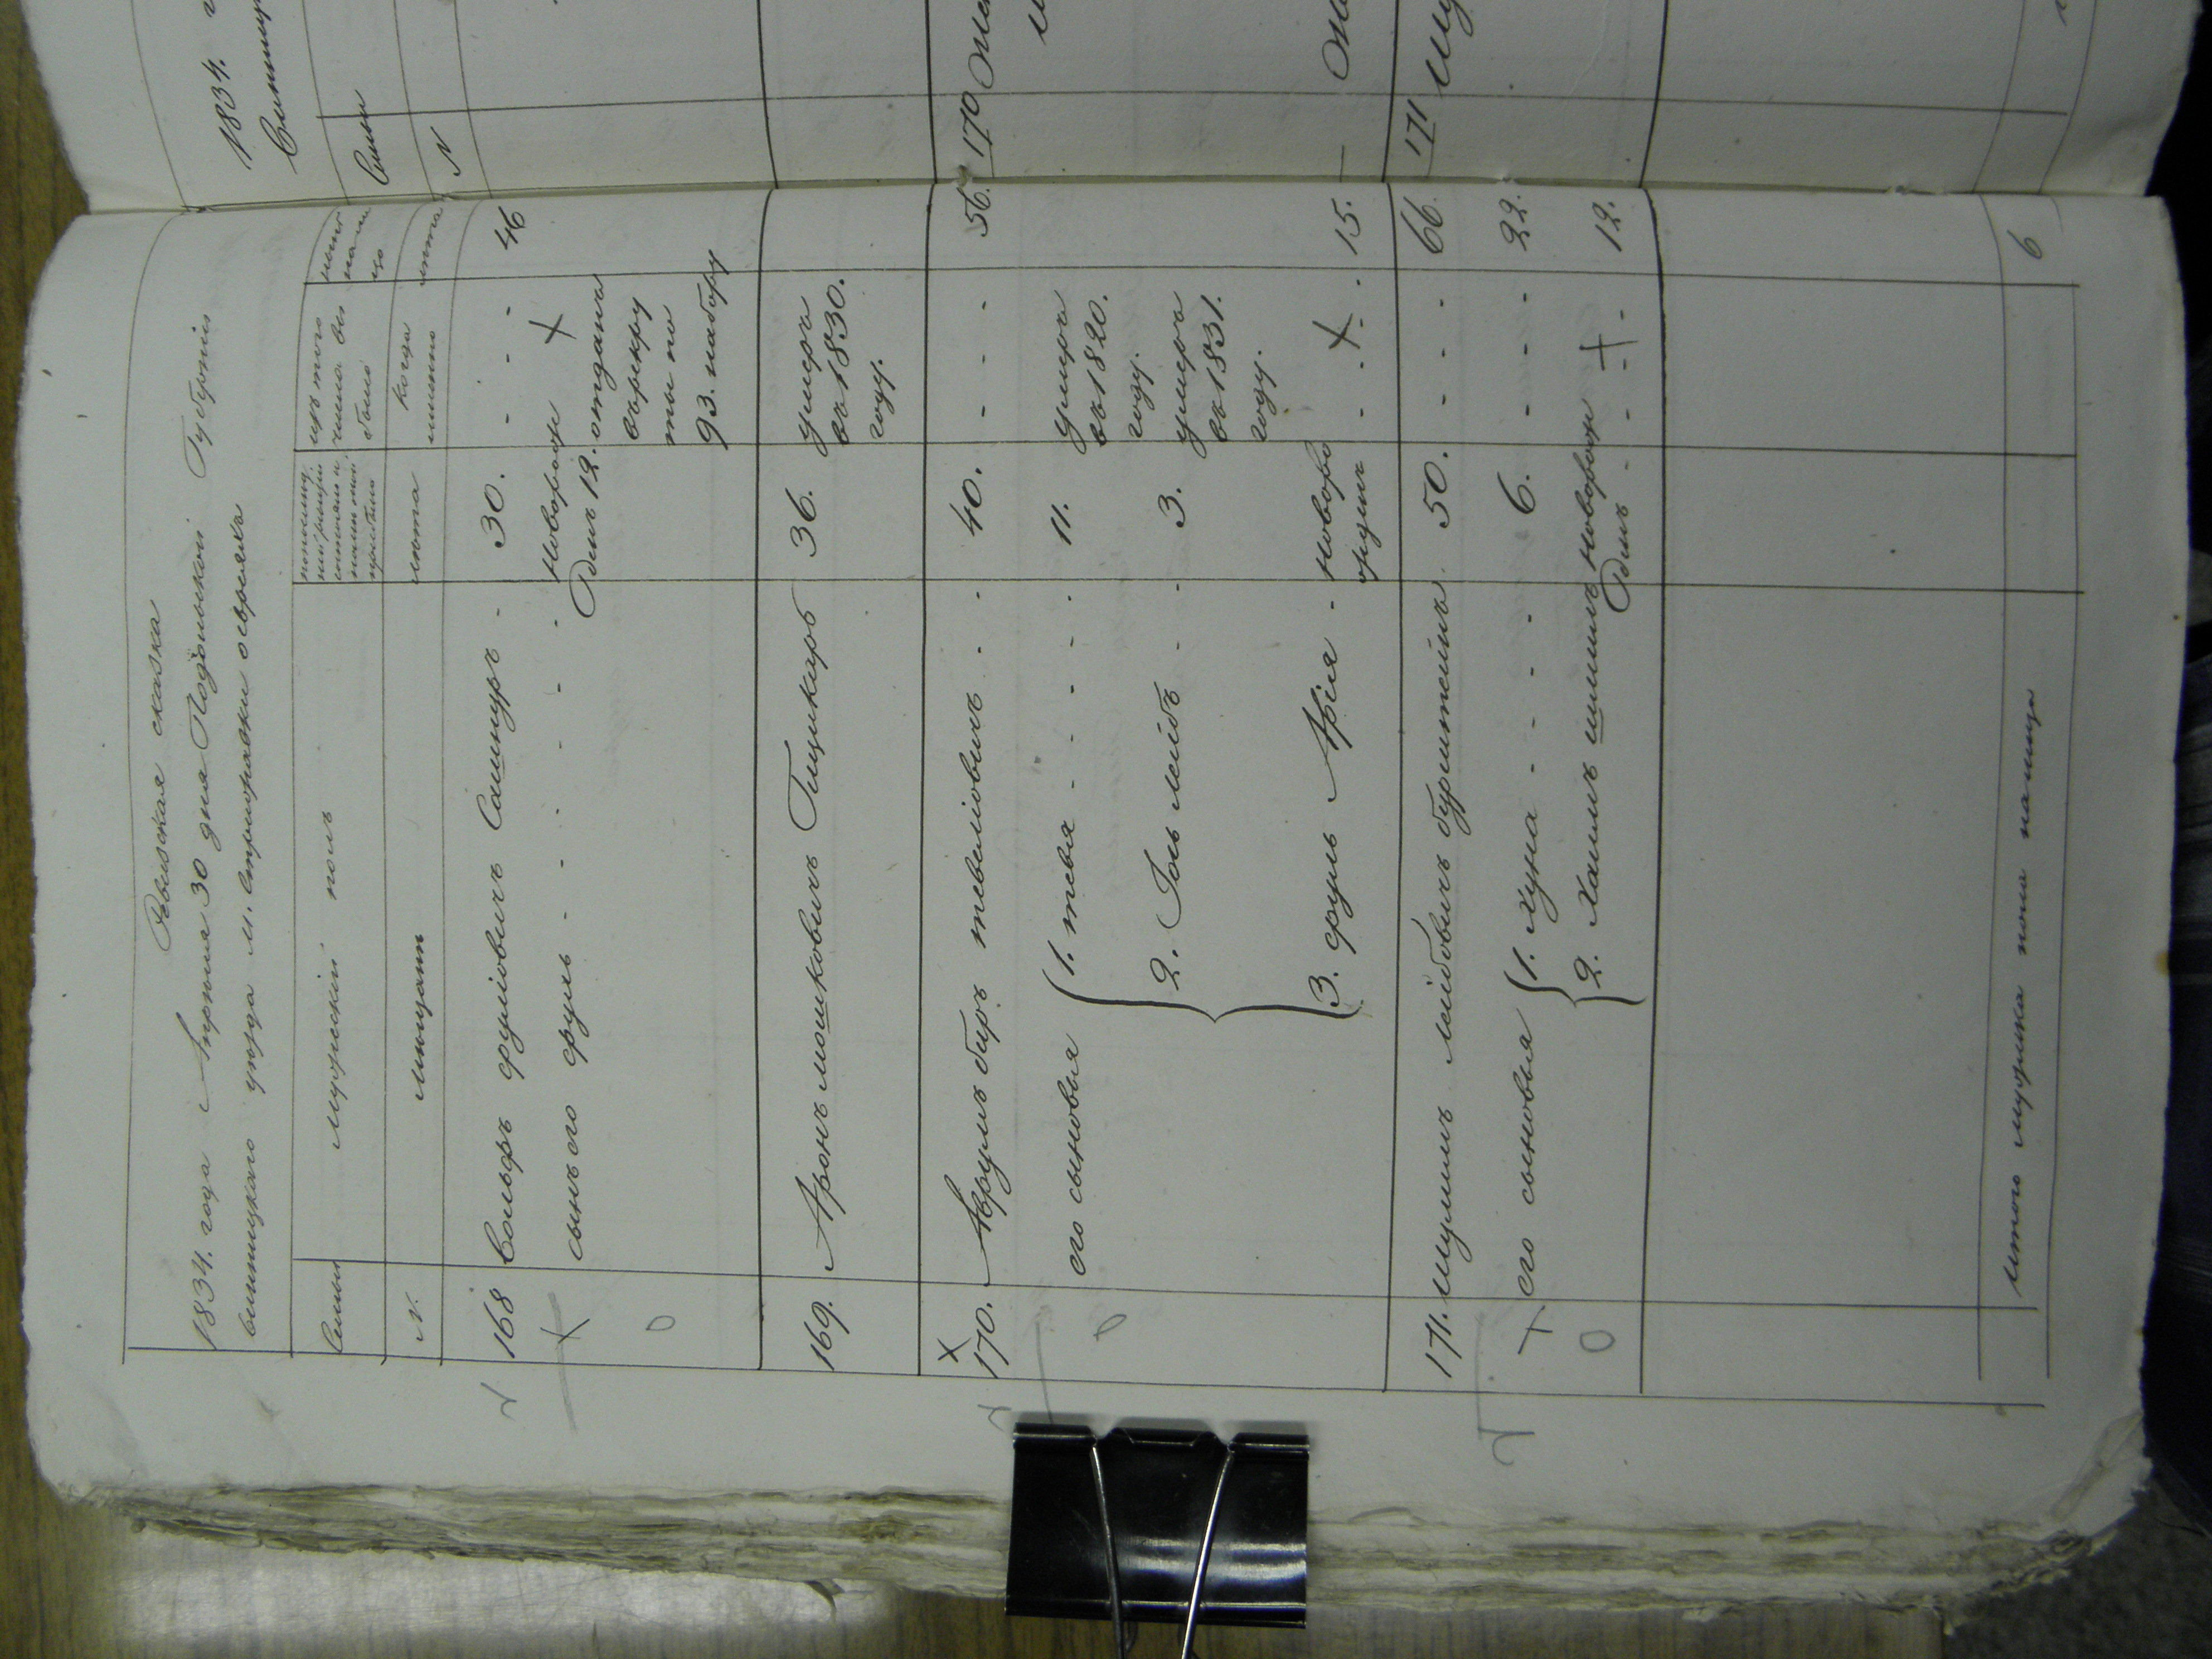 Ревизская сказка
1834. года Апреля 30 дня Подольской Губернiи
винницкого уезда м. Стрижавки о евреяхъ
Семьи
мужескiй полъ
изъ того числа выбыло
N.
мещане
лета
когда именно
лета
168 Вольфъ сруліовичъ Сашнуръ - 30. - - - 46
сынъ его сруль - - - - - новорож
денъ 12. отданъ
в рекру
ты по
93. набору
169. Аронъ мошковичъ Гицикаръ 36. умеръ
въ 1830.
году.
170. Аврумъ беръ тевеліовичъ - - 40. - - - 56.
его сыновья 1. тевья - - - - 11. умеръ
въ 1820.
году.
2. Іось лейбъ - - 3. умеръ
въ 1831.
году.
3. сруль Арія - новоро
жденъ - - - 15.
171. шулимъ лейбовичъ бурштейнъ 50. - - - 66.
его сыновья 1. хуна - - - - 6. - - - 22.
2. хаимъ шимшъ новорож
денъ - - - 12.
итого мужеска пола налицо 6
1834.
Винниц
Семьи
N
170
171